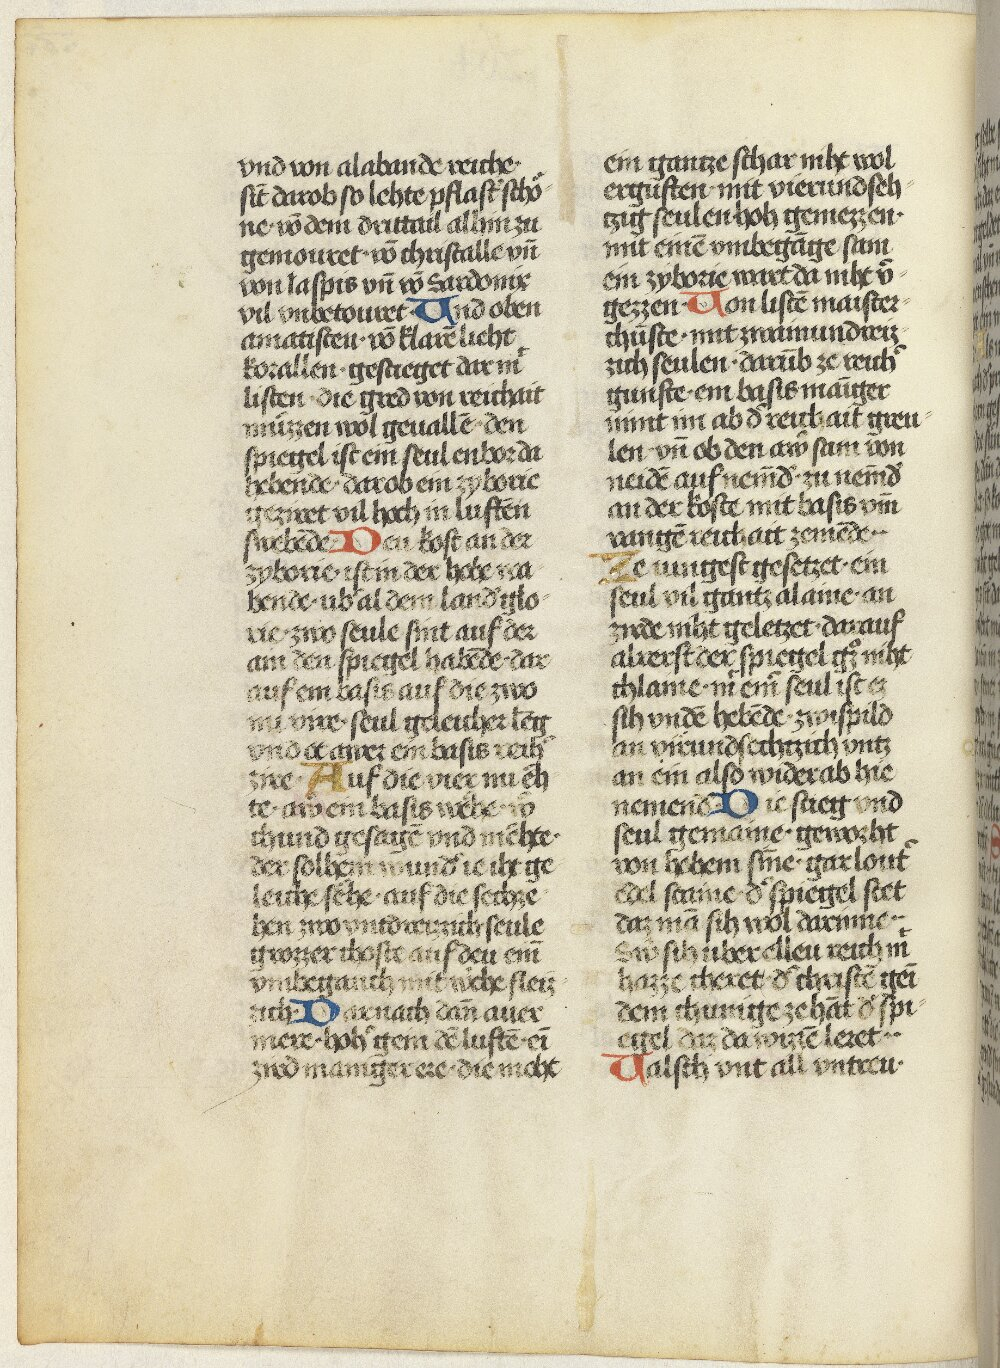 vnd von alabande reiche·
sit̄ darob so lehte pflast᷑ schō
ne· vō dem drittail allhin zu
gemouret· vō christalle vn̄
von Iaspis vn̄ vō Sardonix
vil vnbetouret· Vnd oben
amatisten· vō klarē licht
korallen· gestieget dar in
listen· die gred von reichait
müzzen wol geuallē· den
spiegel ist ein seul enbor da
hebende· darob ein zyborie
gezwet vil hoch in luften
swebēde Den kost an der
zyborie· ist in der hohe wa
bende· vb᷑ al dem land᷑ glo
rie· zwo seule sint auf der
ain den spiegel habēde· dar
auf ein basis auf die zwo
nu vire· seul geleicher leng
vnd ie awer ein basis reich᷑
zire· Auf die vier nu ēh
te· aw᷑ ein basis wehe· w᷑
chund gesagē vnd mēhte·
der solhem wund᷑ ie iht ge
leiche sehe· auf die sechze
hen zwo vntdreizzich seule
grozzer choste auf den eim
vmbeganch mit weche fleiz
zich· Darnach dan̄ auer
mere· hoh᷑ gein dē luftē· ei
zwo maniger ere· die moht
ein gantze schar niht wol
ergunsten· mit vierundseh
tzug seulen hoh gemezzen·
mit einē vmbegāge sam
ein zyborie wart da niht v᷑
gezzen· Von listē maister
chūste· mit zwaimundreiz
zich seulen· darub ze reich᷑
gunste· ein basis maniger
nimt im ab d᷑ reichait greu
len· vn̄ ob den aw᷑ sam von
neidē auf nemd᷑· zu nemd᷑
an der koste mit basis vnn
rangē reichait zemēde··
Ze iungest gesetzet· ein
seul vil gantz alaine· an
zirde niht geletzet· darauf
alrerst der spiegel gz᷑ niht
chlaine· in eim seul ist ez
sih vndē hebēde· zwispild
an virundsechtzich vntz
an ein also widerab hie
nemend᷑ Die stieg vnd
seul gemaine· geworht
von hohem sinē· gar lout᷑
edel staine· d᷑ spiegel stet
daz mā sih wol darinne··
Sw᷑ sih vber elleu reich in
hazze cheret· d᷑ christē gein
dem chunige zehāt d᷑ spi
egel daz da wizzē leret··
Valsch vnt all vntreu·